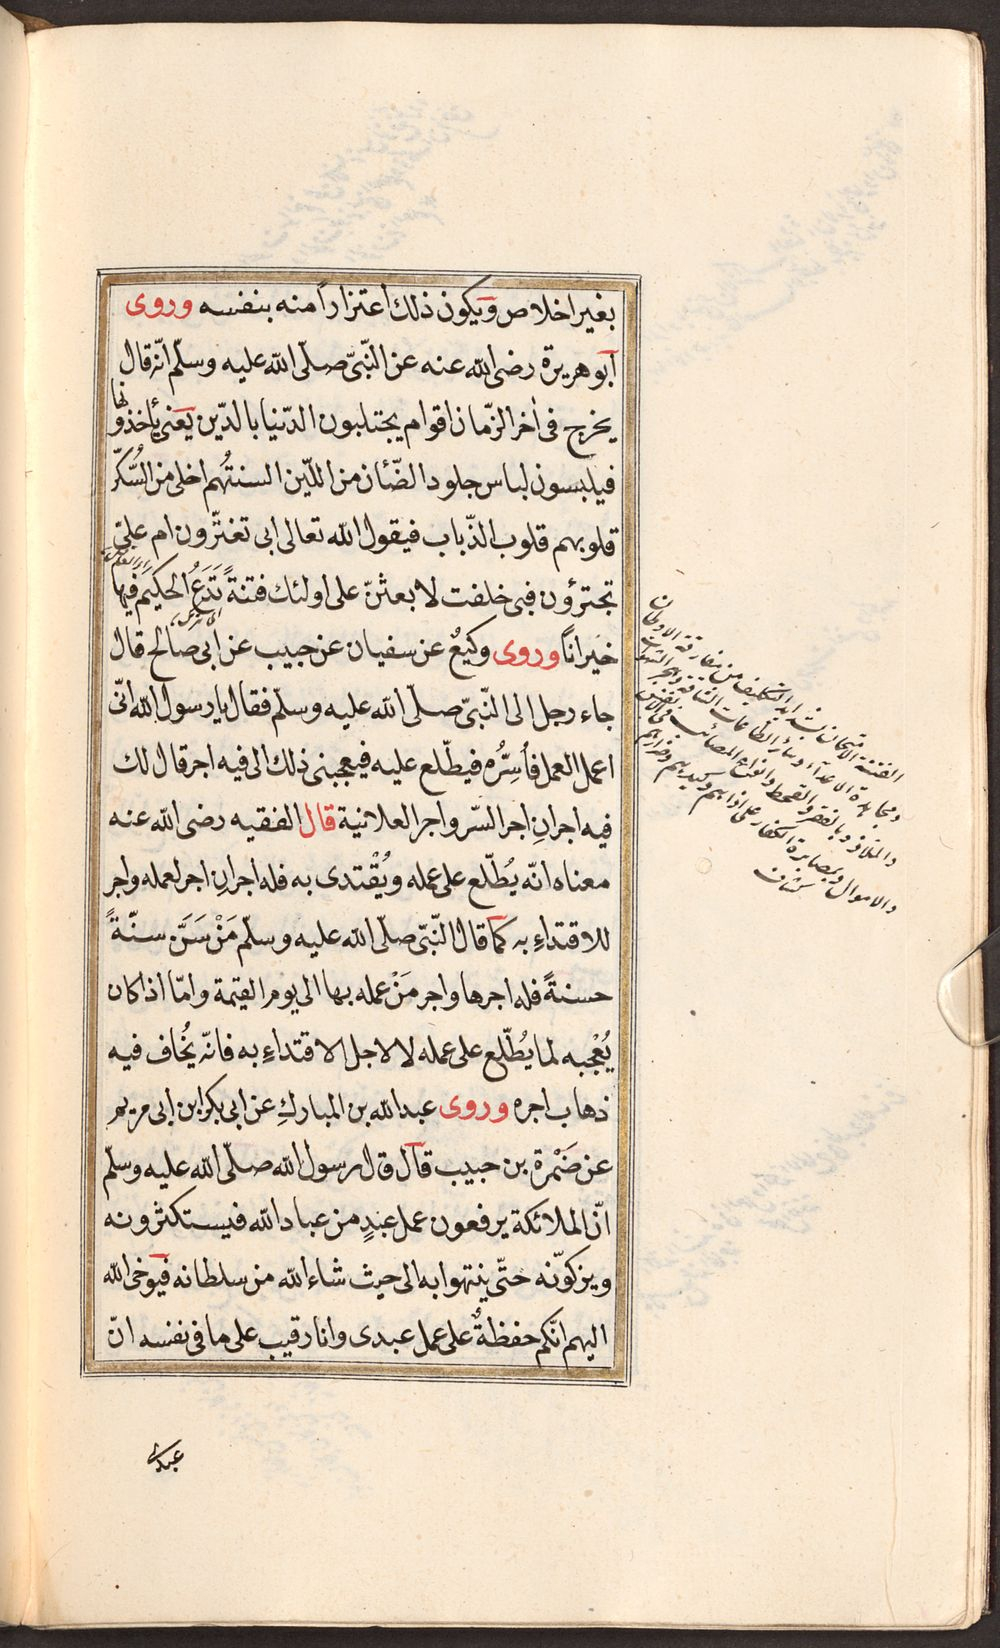 بغير اخلاص ويكون ذلك اعتزاراً منه بنفسه وروى
ابو هريرة رضى الله عنه عن النّبىّ صلّى الله عليه وسلّم انّه قال
يخرج فى اٰخر الزّمان اقوام يجتلبون الدّنيا بالدّين يعنى يأخذونها
فيلبسون لباس جلود الضّئان من اللّين السنتُهم احلى من السُّكّر
قلوبهم قلوب الذّباب فيقول الله تعالى ابى تغتّرون ام علىّ
تجترؤن فبى خلفت لابعثنّ على اولئك فتنةً تَدَعُ الحكيم فيها
حَيراناً وروى وكيعٌ عن سفيان عن حبيب عن ابى صالح قال
جاء رجل الى النّبىّ صلّى الله عليه وسلّم فقال يا رسول الله انّى
اعمل العمل فأسِرُّه فيطّلع عليه فيعجبنى ذلك الى فيه اجر قال لك
فيه اجرانِ اجر السّر واجر العلانية قال الفقيه رضى الله عنه
معناه انّه يُطّلع على عمله ويُقْتدى به فله اجرانِ اجر لعمله واجر
للاقتداءِ به كما قال النّبىّ صلّى الله عليه وسلّم مَنْ سَنَّ سنّةً
حسنةً فله اجرها واجر مَنْ عمله بها الى يوم القيمة وامّا اذا كان
يُعْجبه لما يُطّلع على عمله لا لاجل الاقتداءِ به فانّه يُخاف فيه
ذهاب اجره وروى عبد الله بن المباركِ عن ابى بكر ابن ابى مريم
عن ضَمْرة بن حبيب قال قال رسول الله صلّى الله عليه وسلّم
انّ الملائكة يرفعون عمل عبدٍ من عباد الله فيستكثرونه
ويزكّونه حتّى ينتهوا به الى حيث شاء الله من سلطانه فيوحى الله
اليهم انّكم حفظةٌ على عمل عبدى وانا رقيب على ما فى نفسه انّ
الفتنة الامتحان بشدايد التكليف من مفارقة الاوطان
ومجاهدة الاعداء وسائر الطاعات الشاقة وهجر الشهوات
والملاذ وبالفقر والقحط وانواع المصائب فى الانفس
والاموال وبمصابرة الكفار على اذاهم وكيدهم وضرارهم
كشاف
عبدى